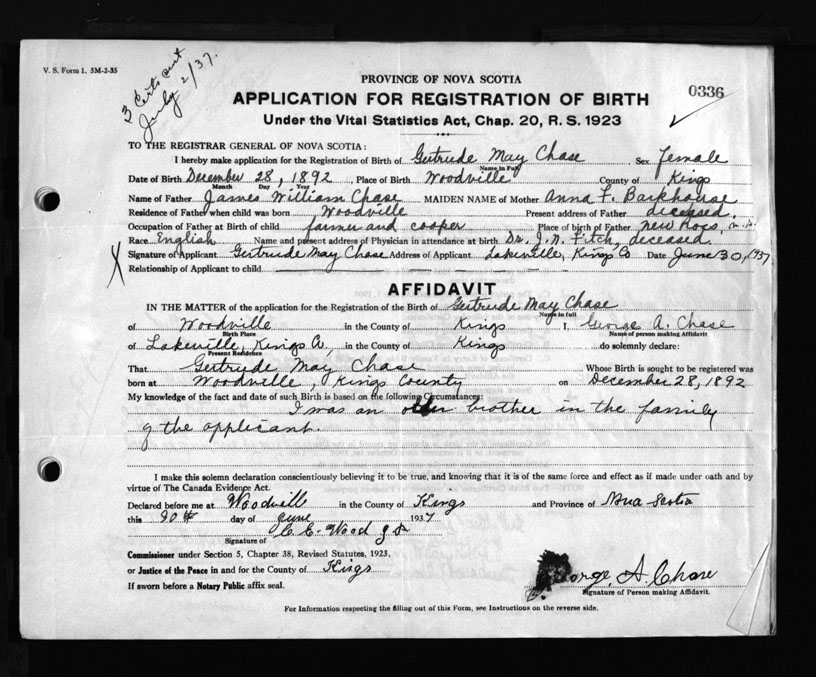 V. S. Form 1, 5M-2-35
3 Certs sent
July 2/37.
PROVINCE OF NOVA SCOTIA
APPLICATION FOR REGISTRATION OF BIRTH
0336
Under the Vital Statistics Act, Chap. 20, R. S. 1923
TO THE REGISTRAR GENERAL OF NOVA SCOTIA:
I hereby make application for the Registration of Birth of Gertrude May Chase Sex female
Name in Full
Date of Birth December 28, 1892, Place of Birth Woodville County of Kings
Month Day Year
Name of Father James William Chase MAIDEN NAME of Mother Anna F. Barkhouse
Residence of Father when child was born Woodville Present address of Father deceased.
Occupation of Father at Birth of child farmer and cooper Place of birth of Father New Ross, N.S.
Race English Name and present address of Physician in attendance at birth Dr. J. N. Fitch, deceased.
Signature of Applicant Gertrude May Chase Address of Applicant Lakeville, Kings Co Date June 30, 1937
Relationship of Applicant to child
AFFIDAVIT
IN THE MATTER of the application for the Registration of the Birth of Gertrude May Chase
Name in full
of Woodville in the County of Kings I, George A. Chase
Birth Place Name of person making Affidavit
of Lakeville, Kings Co., in the County of Kings do solemnly declare:
Present Residence
That Gertrude May Chase Whose Birth is sought to be registered was
born at Woodville, Kings County on December 28, 1892
My knowledge of the fact and date of such Birth is based on the following Circumstances:
I was an older brother in the family
of the applicant.
I make this solemn declaration conscientiously believing it to be true, and knowing that it is of the same force and effect as if made under oath and by
virtue of The Canada Evidence Act.
Declared before me at Woodville in the County of Kings and Province of Nova Scotia
this 30th day of June 1937
Signature of C. E. Wood J P
Commissioner under Section 5, Chapter 38, Revised Statutes, 1923,
or Justice of the Peace in and for the County of Kings
George A. Chase
If sworn before a Notary Public affix seal.
Signature of Person making Affidavit.
For Information respecting the filling out of this Form, see Instructions on the reverse side.